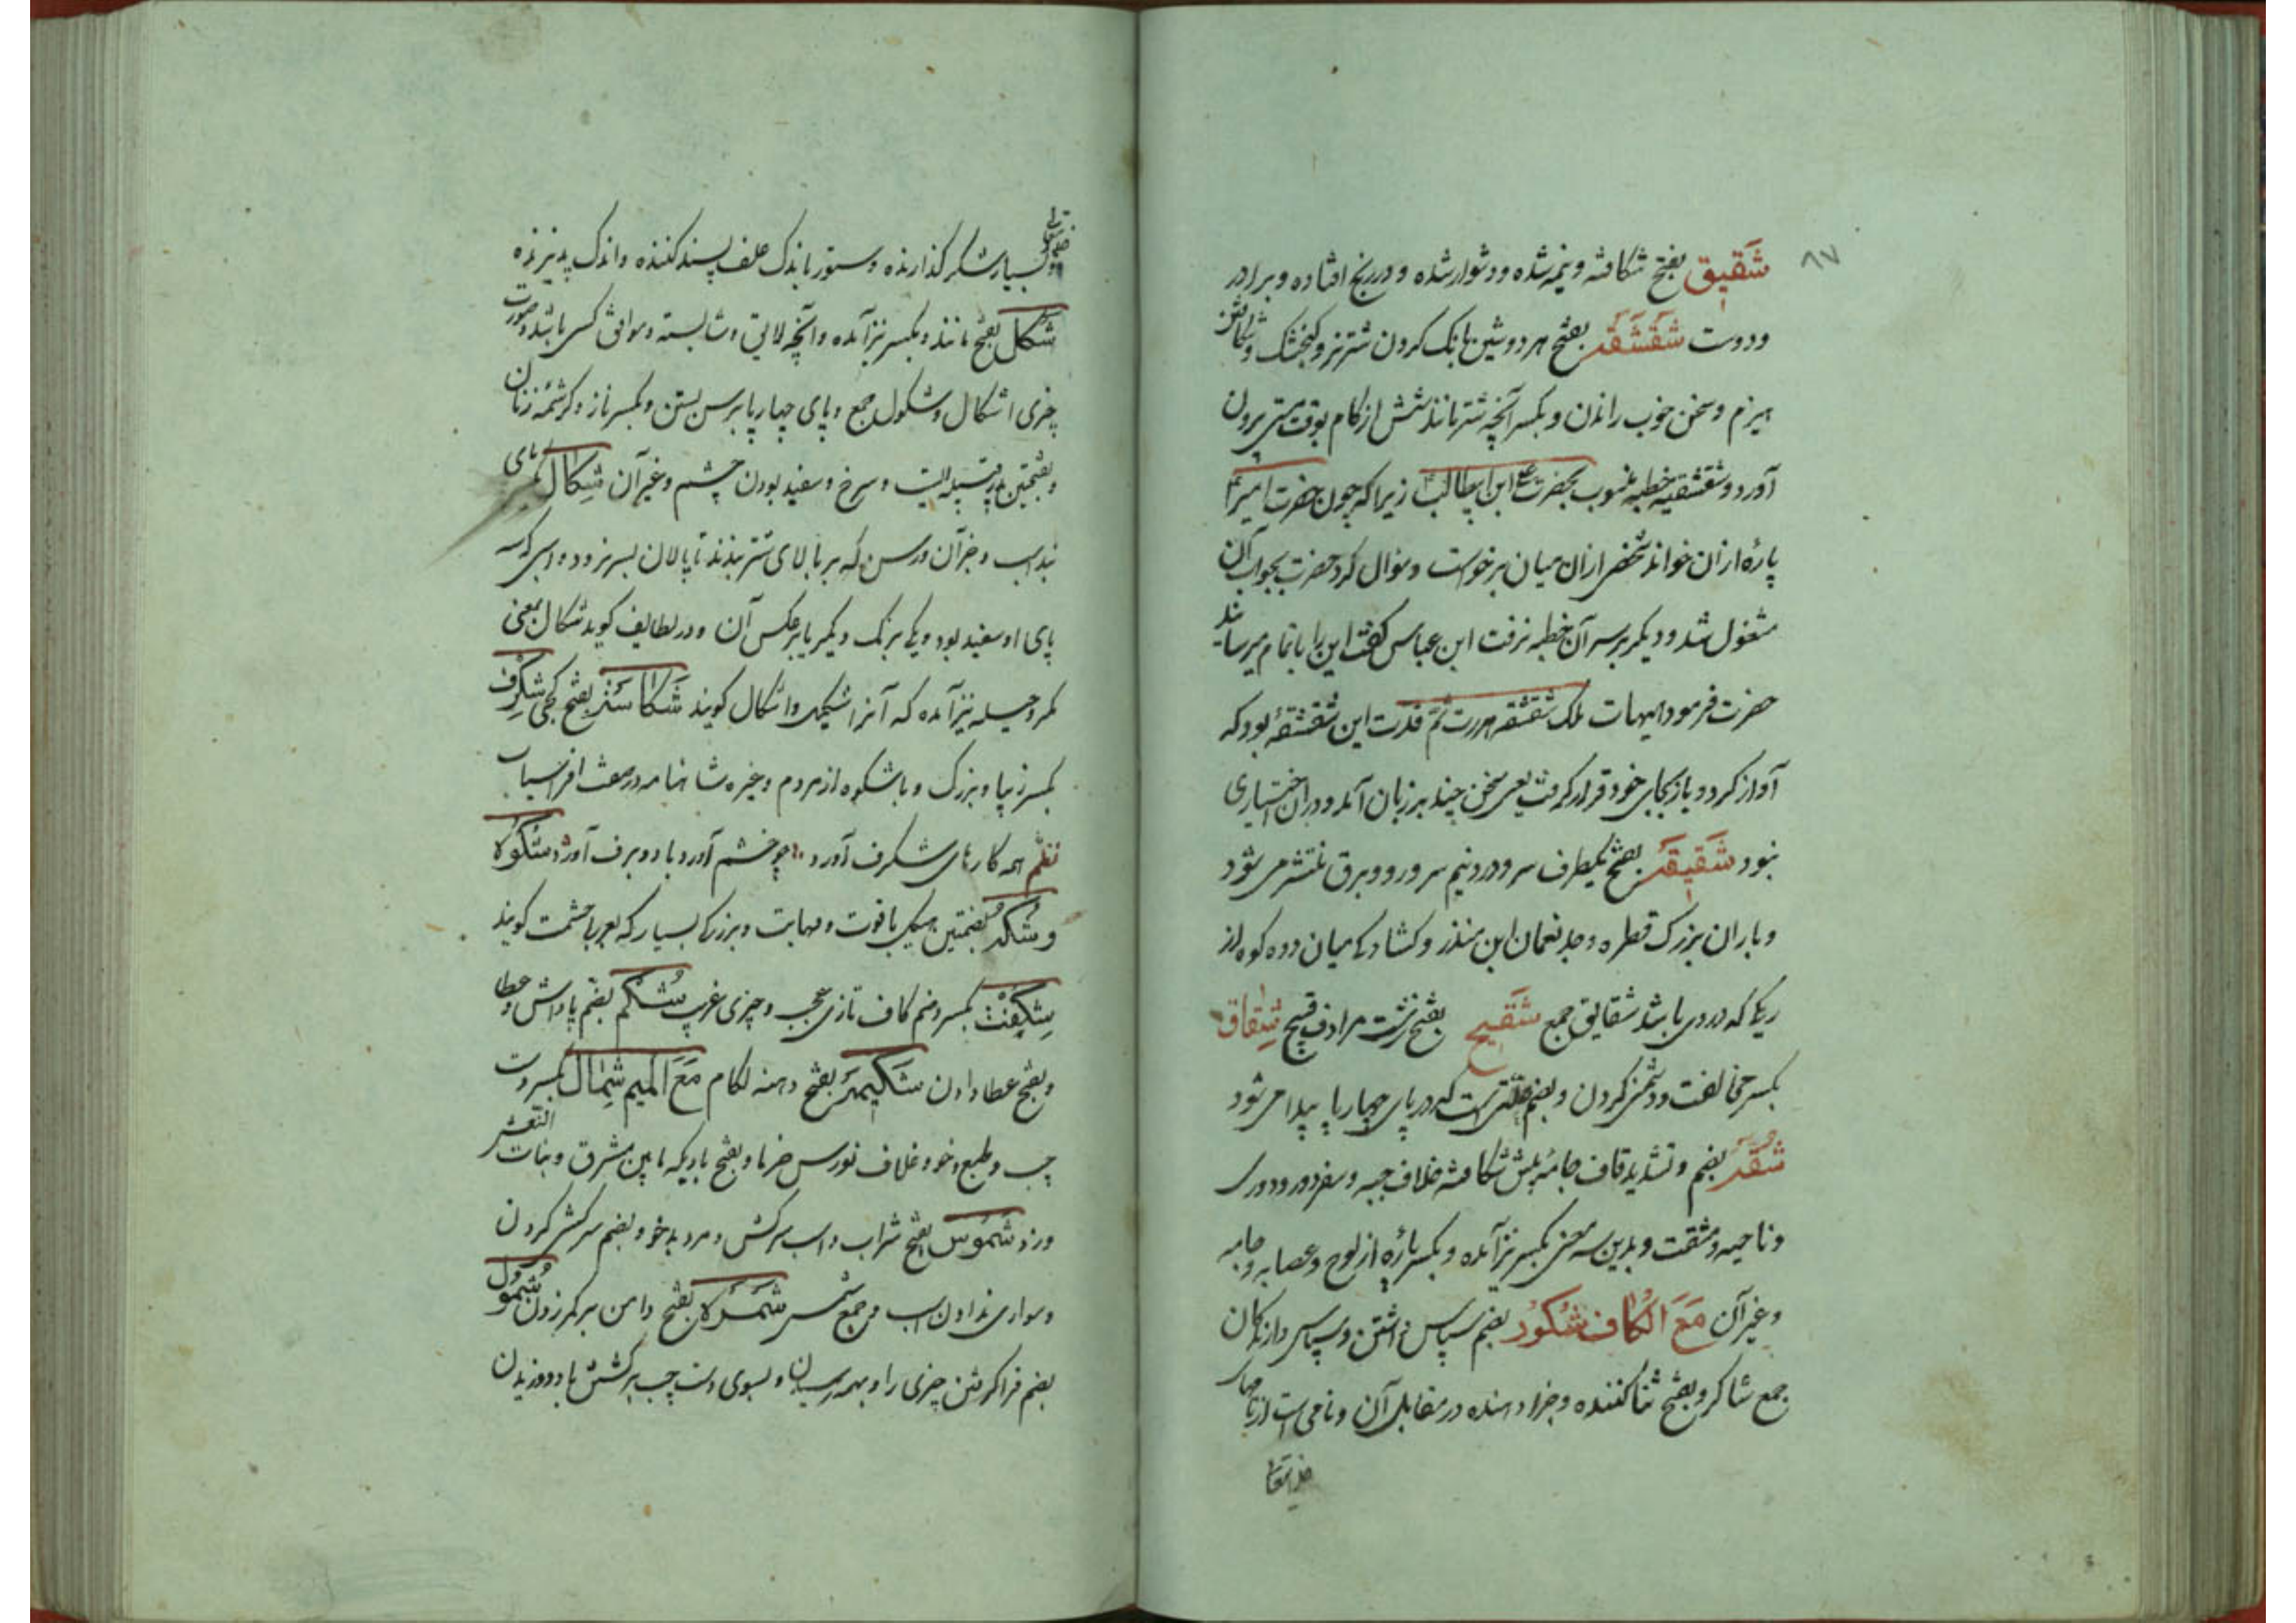 ۸۷
شَقیق بفتح شکافته و نیمه شده و دشوار شده و در رنج افتاده و برادر
و دوست شَقشَقَه بفتح هر دو شین بانک کردن شتر نر و کنجشک و شکافتن
هیزم و سخن خوب راندن و بکسر آنچه شتر مانند شش از کام بوقت مستی بیرون
آورد و شقشقیه خطبه منسوب بحضرت علی ابن ابیطالب زیرا که چون حضرت امیر
پارهٔ ازان خواند شخصی ازان میان برخواست و سوال کرد حضرت بجواب آن
مشغول شد و دیکر بر سر آن خطبه نرفت ابن عباس کفت این را باتمام میرسانید
حضرت فرمود هیهات تلک شقشقه هدرت ثم قرت این شقشقهٔ بود که
آواز کرد و باز بجای خود قرار کرفت یعنی سخن چند بر زبان آمد و دران اختیاری
نبود شَقیقَه بفتح یکطرف سر و درد نیم سر و رو و برق منتشر می شود
و باران بزرک قطره و جد نعمان ابن منذر و کشادکی میان دو ده کوه از
ریک که دردی باشد شقایق جمع شَقیح بفتح زشت مرادف قبیح شِقاق
بکسر مخالفت و دشمنی کردن و بضم علتی است که در پای چهارپا پیدا می شود
شُقَّه بضم و تشدید قاف جامهٔ پیش شکافته خلاف جبه و سفر دور و دوری
و ناحیه و مشقت و بدین سه معنی بکسر نیز آمده و بکسر پارهٔ از لوح و عصا و جامه
و غیر آن مَعَ الکاف شُکُور بضم سپاس داشتن و سپاس دارندکان
جمع شاکر و بفتح ثنا کننده و جزا دهنده در مقابل آن و نامی است از نامهای
خدایتعالی
خدایتعالی
و بسیار شکر کذارنده و ستور باندک علف پسند کننده و اندک پذیرنده
شَکل بفتح مانند و بکسر نیز آمده و آنچه لایق و شایسته و موافق کسی باشد و صورت
چیزی اشکال و شکول جمع و پای چهارپا برسن بستن و بکسر ناز و کرشمه زنان
و بفتحتین و سرخ و سفید بودن چشم و غیر آن شِکال بکسر پای
بند اسب و جز آن و رسن که بر بالای شتر بندند تا پالان بسر نرود و اسبی که سه
پای او سفید بود و یکی برنک دیکر یا برعکس آن و در لطایف کوید شکال بمعنی
مکر و حیله نیز آمده که آنرا اشکیل و اشکال کویند بفتح کجی شِکَرف
بکسر زیبا و بزرک و با شکوه از مردم و غیره شاهنامه در صفت افراسیاب
نظم همه کارهای شکرف آورد چو خشم آورد باد و برف آورد شُکُوه
و شُکُه بضمتین هیکل با قوت و مهابت و بزرکی بسیار که بعربی حشمت کویند
شِکِفت بکسر و ضم کاف تازی عجب و چیزی غریب شُکم بضم پاداش و عطا
و بفتح عطا دادن شَکیمَه بفتح دهنه لکام مَعَ المیم شِمال بکسر دست
چپ و طبع و خو و غلاف نورس خرما و بفتح بادیکه مابین مشرق و بنات النعش
وزد شَمُوس بفتح شراب و اسب سرکش و مرد بدخو و بضم سرکشی کردن
و سواری ندادن اسب و جمع شمس بفتح دامن بر کمر زدن شُمُول
بضم فرا کرفتن چیزی را و بهمه رسیدن و بسوی دست چپ برکشتن باد و وزیدن